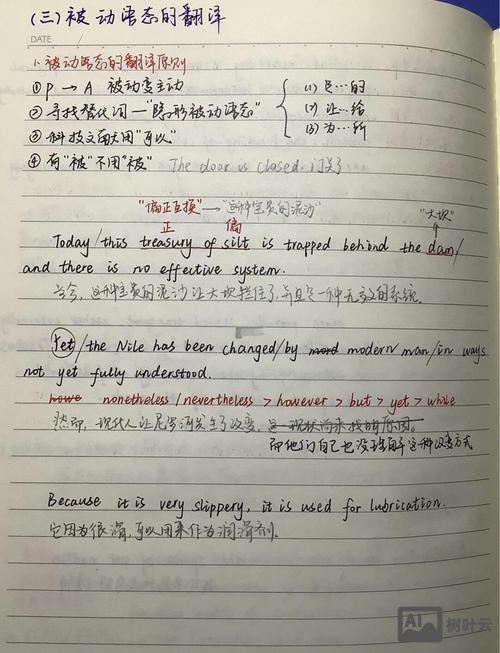 (三)被动语态的翻译
DATE /
1. 被动语态的翻译原则
① P → A 被动变主动
② 寻找替代词—"隐形被动语态"
③ 科技文章大用"可以"
④ 有"被"不用"被" The door is closed. 门关了
(1) 是…的
(2) 让…给
(3) 为…所
"偏正互换"→"这种宝贵的泥沙"
正 偏 "大坝"
Today/this treasury of silt is trapped behind the dam/
and there is no effective system.
当今,这种宝贵的泥沙让大坝拦住了,并且是一种无效的系统.
Yet/the Nile has been changed/by mord modern man/in ways
not yet fully understood.
howe nonetheless/nevertheless > however > but > yet > while
然而,现代人让尼罗河发生了改变,
而他们自己也没理解这种改变方式
Because it is very slippery, it is used for lubrication.
它因为很滑,可以用来作为润滑剂.
AI 树叶云